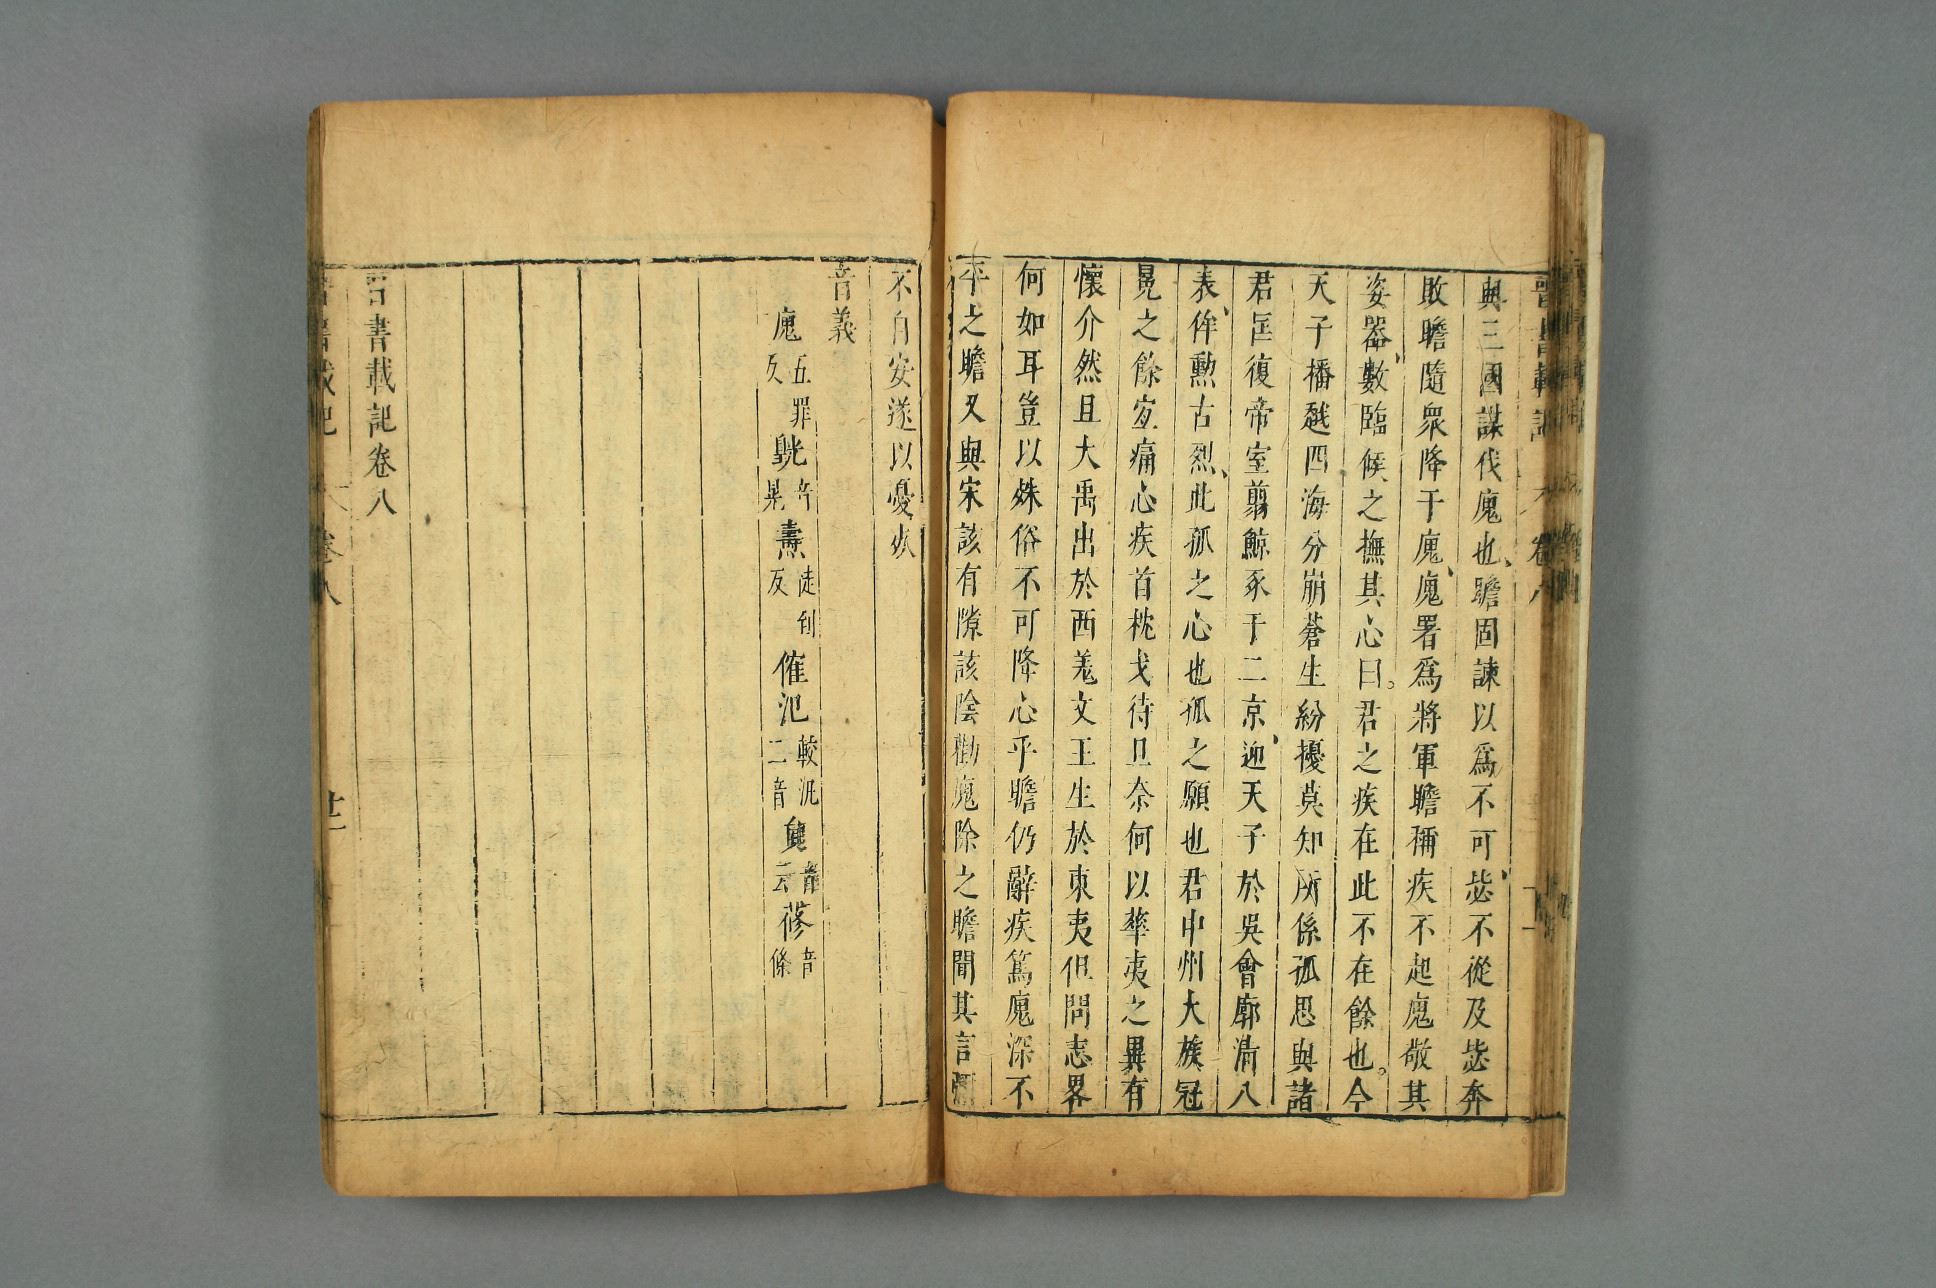 晉書載記 卷八
與三國謀伐廆也瞻固諫以爲不可毖不從及毖奔
敗瞻隨衆降于廆廆署爲將軍瞻稱疾不起廆敬其
姿器數臨候之撫其心曰君之疾在此不在餘也今
天子播越四海分崩蒼生紛擾莫知所係孤思與諸
君匡復帝室翦鯨豕于二京迎天子於吳會廓清八
表侔勳古烈此孤之心也孤之願也君中州大族冠
冕之餘宜痛心疾首枕戈待旦奈何以華夷之異有
懷介然且大禹出於西羌文王生於東夷但問志畧
何如耳豈以殊俗不可降心乎瞻仍辭疾篤廆深不
平之瞻又與宋該有隙該陰勸廆除之瞻聞其言彌
不自安遂以憂死
音義
廆五罪反 皝乎晃 燾徒到反 催汜較汜二音 奠音云 蓚音條
晉書載記卷八
晉書載記 卷八 廿一